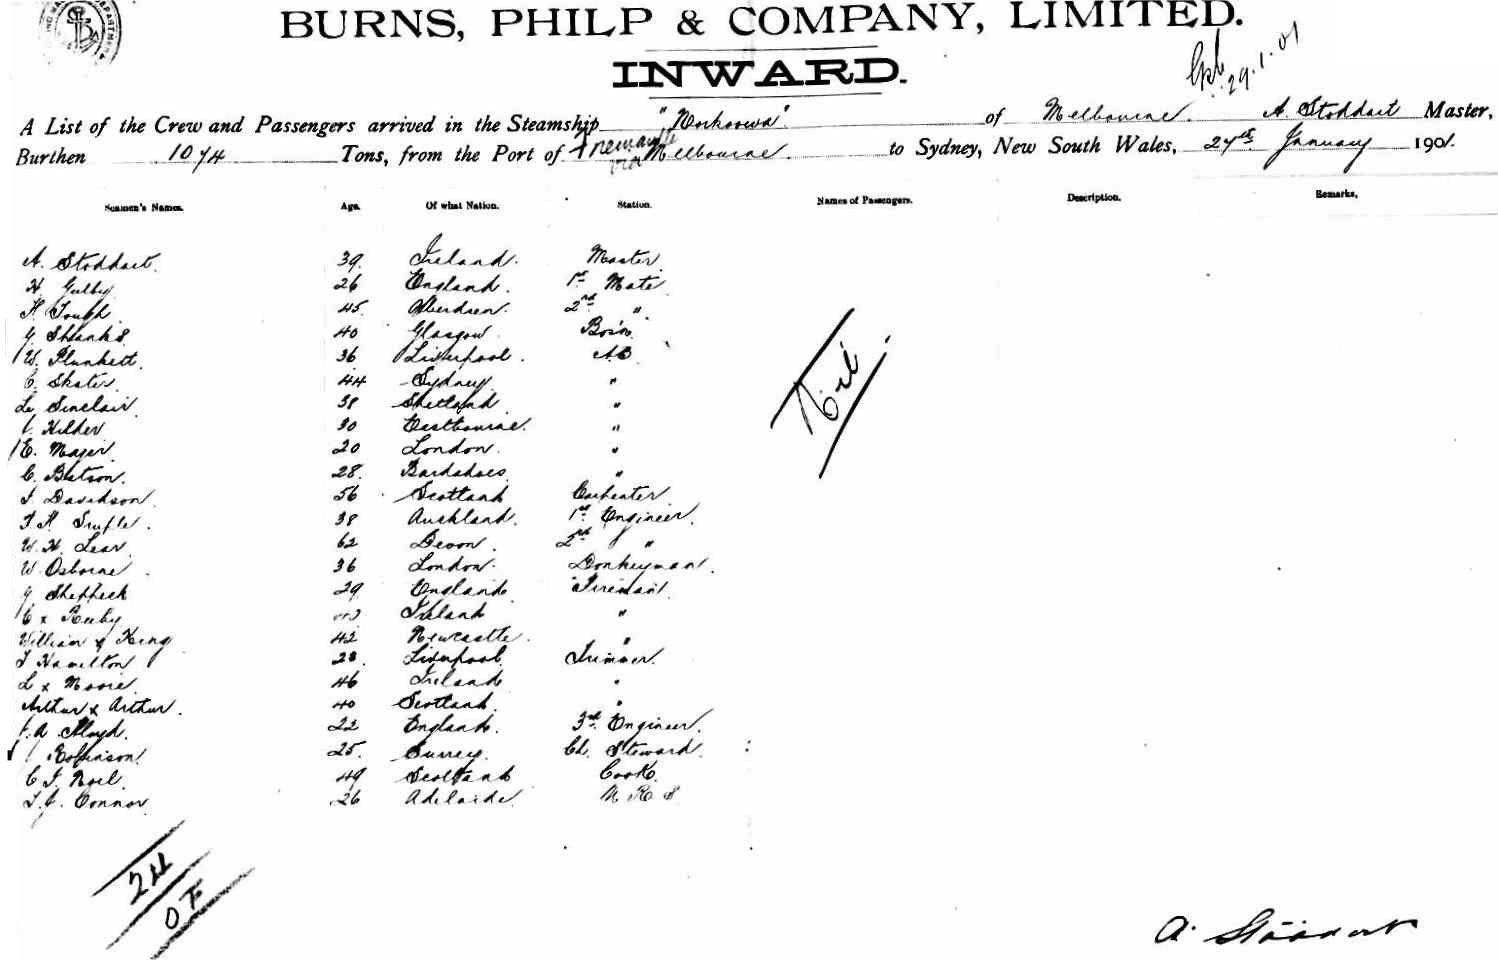 BURNS, PHILP & COMPANY, LIMITED.
INWARD.
29.1.01
A List of the Crew and Passengers arrived in the Steamship of Melbourne. A. Stoddart Master,
Burthen 1074 Tons, from the Port of Fremantle via Melbourne. to Sydney, New South Wales, 27th January 1901.
Seamen's Names. Age. Of what Nation. Station. Names of Passengers. Description. Remarks,
A. Stoddart. 39. Ireland. Master
H. Gulby 26 England. 1st Mate
H. Tough. 45. Aberdeen. 2nd "
G. Shanks 40 Glasgow Bos'n.
W. Plunkett. 36 Liverpool. AB
C. Skater 44 Sydney "
L. Sinclair 38 Shetland "
Hilder 30 Eastbourne. "
E. Mager. 20 London. "
C. Batson. 28. Barbadoes "
J. Davidson. 56 Scotland Carpenter
38 Auckland. 1st Engineer.
W. H. Lear 62 Devon. 2nd "
W. Osborne 36 London. Donkeyman.
29 England Fireman.
C x Ruby Ireland "
William x King 42 Newcastle. "
J Hamilton 28. Liverpool. Trimmer.
L x Moore 46 Ireland "
Arthur x Arthur. 40 Scotland. "
A. Lloyd. 22 England. 3rd Engineer.
Robinson 25. Surrey. Ch. Steward.
C. J. Noel 49 Scotland Cook.
J. C. Connor 26 Adelaide.
Nil
24
A. Stoddart